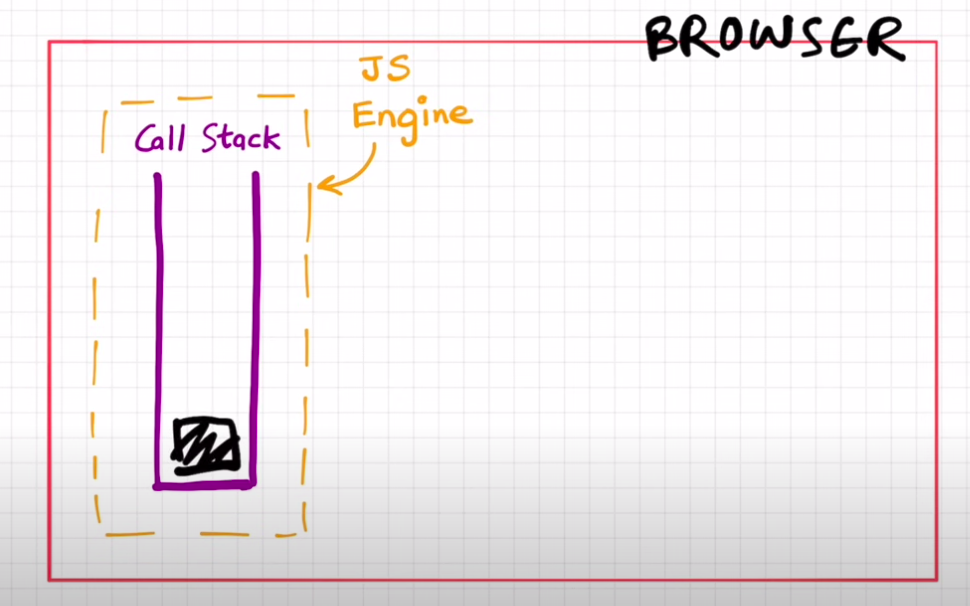 BROWSER
JS
Engine
Call Stack